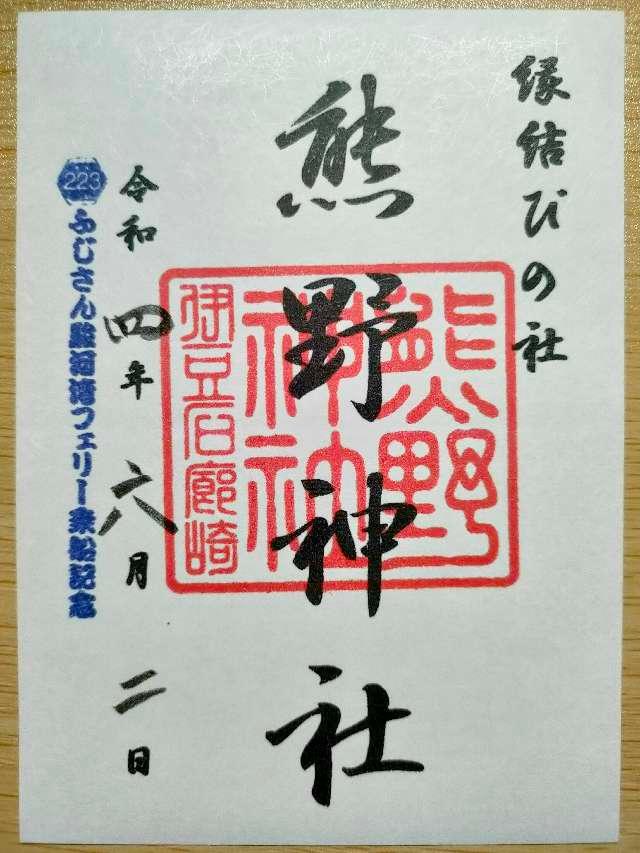 縁結びの社
熊野神社
熊野
神社
伊豆石廊崎
令和四年六月二日
223
ふじさん駿河湾フェリー乗船記念